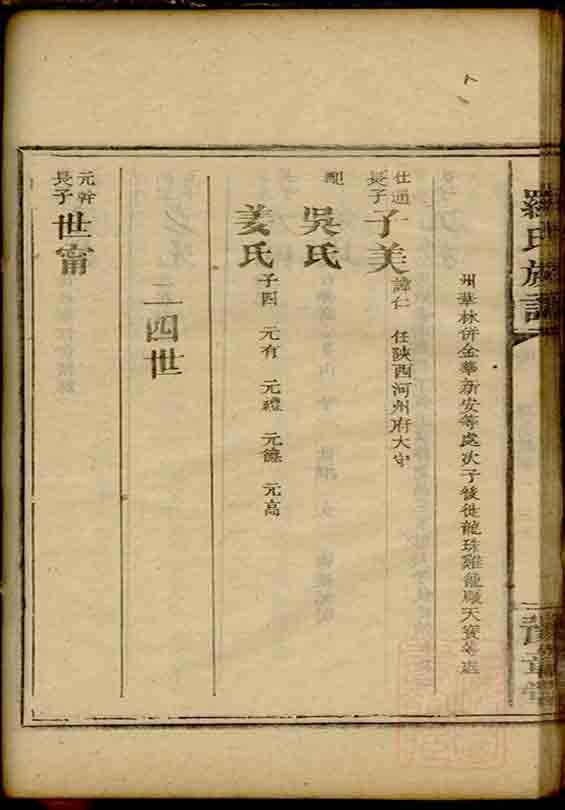 羅氏族譜
豫章堂
州華林併金華新安等處次子後徙龍珠雞籠殿天寶等處
仕通長子 子美 諱仁 任陝西河州府大守
配 吳氏
姜氏 子四 元有 元禮 元餘 元高
二四世
元幹長子 世甯